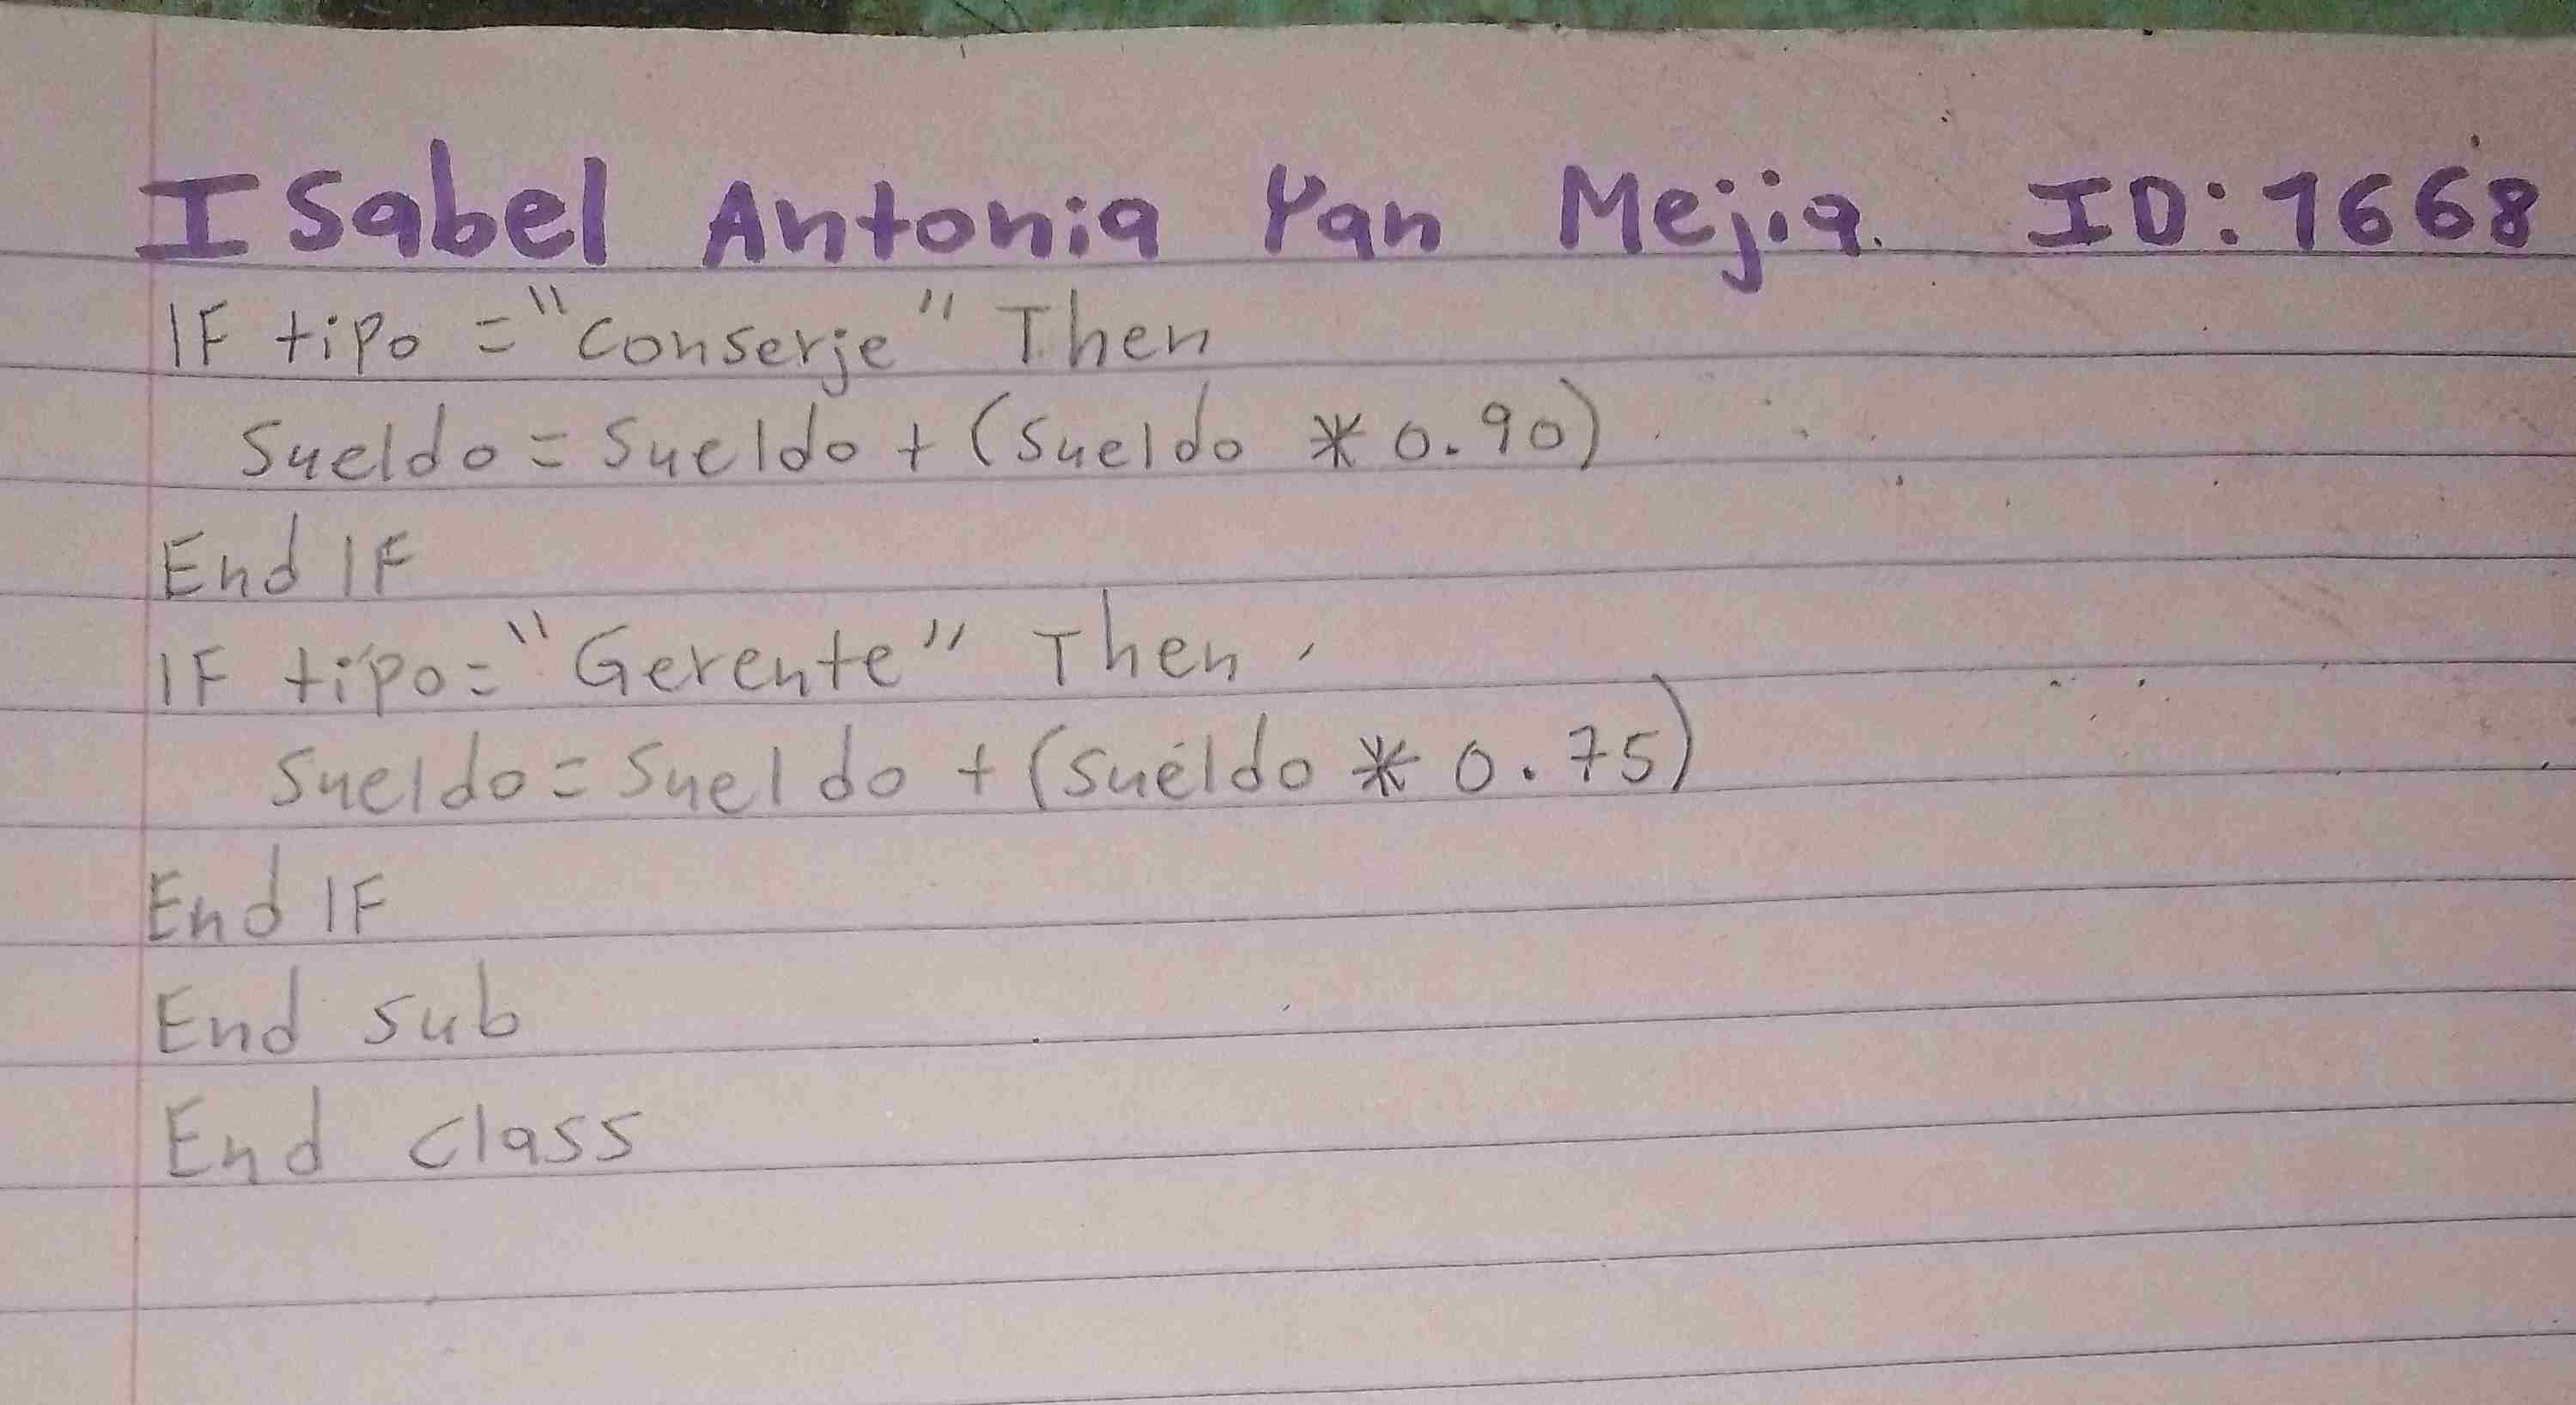 Isabel Antonia Yan Mejia. ID: 1668
IF tipo = "Conserje" Then
Sueldo = Sueldo + (Sueldo * 0.90)
End IF
IF tipo = "Gerente" Then
Sueldo = Sueldo + (Sueldo * 0.75)
End IF
End Sub
End Class